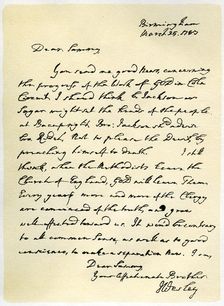 Birmingham
March 25, 1787
Dear Sammy
You send me good News, concerning
the progress of the Work of God in Cole
Corent. I should think Bro. Jackson or
Sagar might set the Heads of the people
at Brecon right. Dr. Jackson should
. Not to please the Devil, by
preaching himself to death. I still
think, when the Methodists leave the
Church of England, God will leave Them.
Every year more and more of the Clergy
are convinced of the truth, and grow
well-affected toward us. It would be contrary
to all common Sense, as well as to good
conscience, to make a separation now. I am
Dear Sammy
Your affectionate Brother
J Wesley